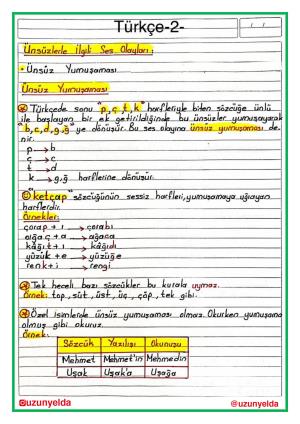 Türkçe-2-
Ünsüzlerle İlgili Ses Olayları:
• Ünsüz Yumuşaması
Ünsüz Yumuşaması
Türkçede sonu "p,ç,t,k" harfleriyle biten sözcüğe ünlü
ile başlayan bir ek getirildiğinde bu ünsüzler yumuşayarak
"b,c,d,g,ğ" ye dönüşür. Bu ses olayına ünsüz yumuşaması de-
nir.
p → b
ç → c
t → d
k → g,ğ harflerine dönüşür.
"ketçap" sözcüğünün sessiz harfleri, yumuşamaya uğrayan
harflerdir.
Örnekler:
çorap + ı → çorabı
ağaç + a → ağaca
kâğıt + ı → kâğıdı
yüzük + e → yüzüğe
renk + i → rengi
Tek heceli bazı sözcükler bu kurala uymaz.
Örnek: top, süt, üst, üç, çöp, tek gibi.
Özel isimlerde ünsüz yumuşaması olmaz. Okurken yumuşama
olmuş gibi okuruz.
Örnek:
Sözcük Yazılışı Okunuşu
Mehmet Mehmet'in Mehmedin
Uşak Uşak'a Uşağa
@uzunyelda @uzunyelda